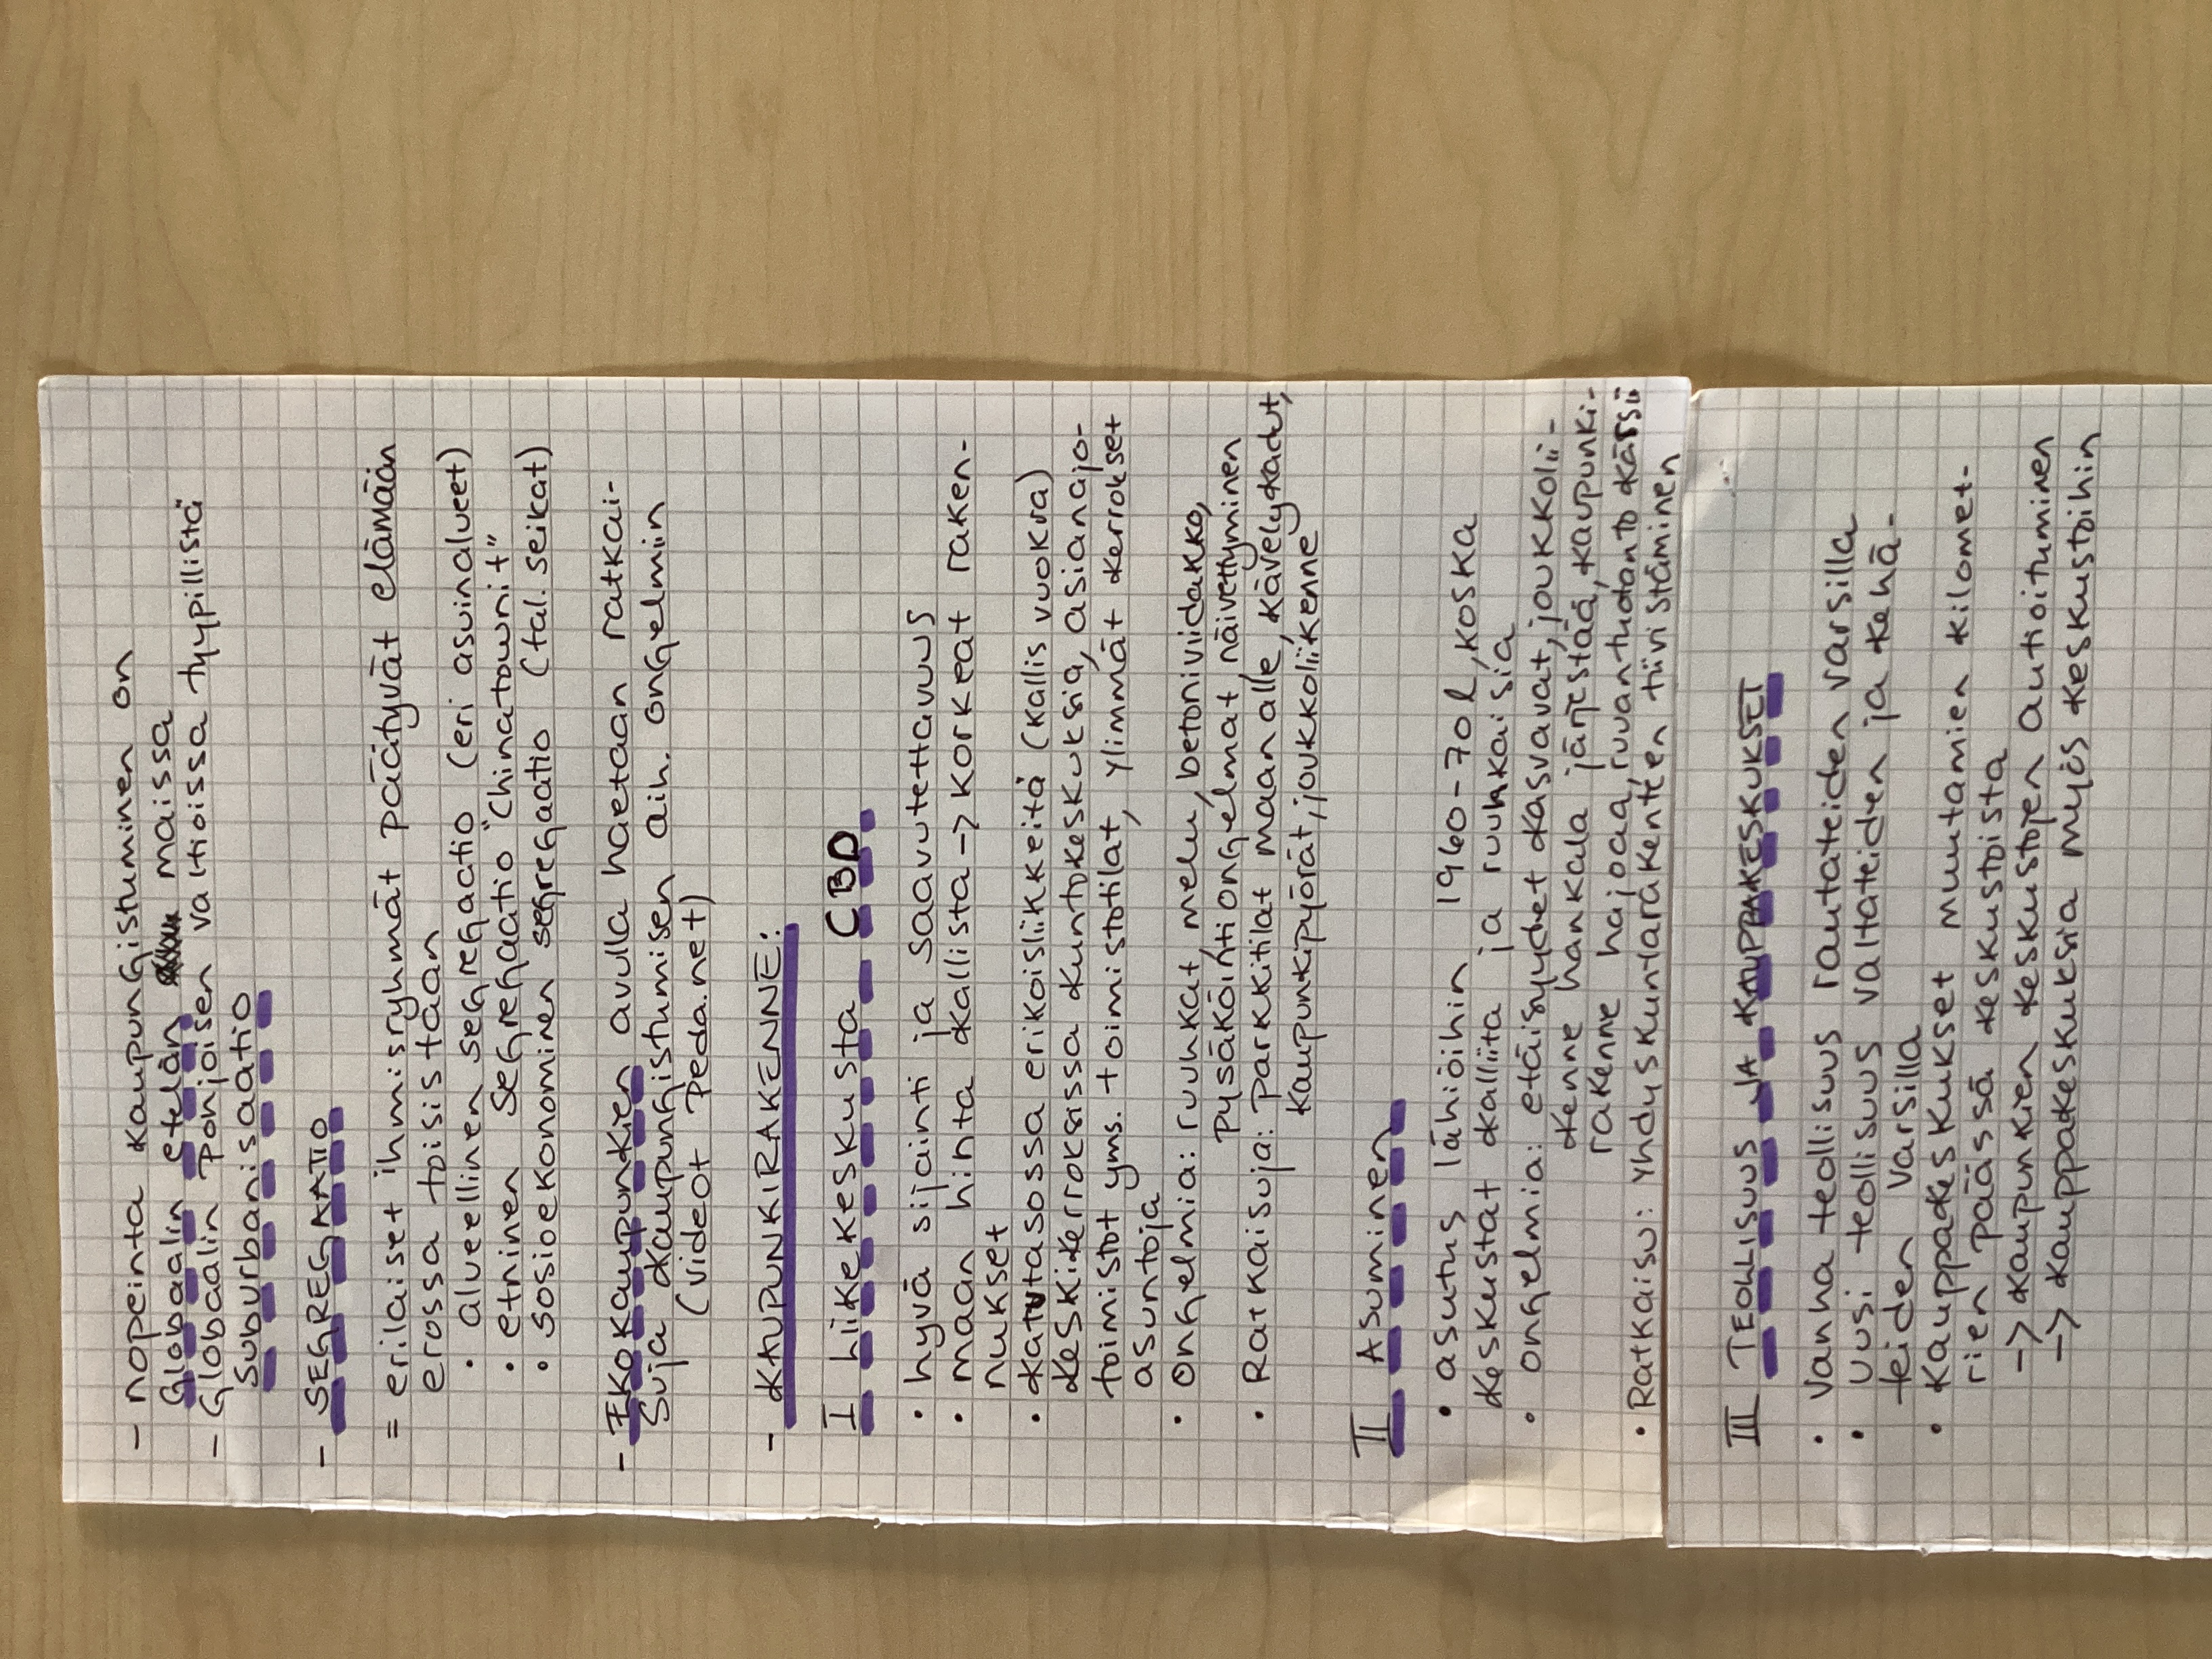 - nopeinta kaupungistuminen on
Globaalin etelän maissa
- Globaalin Pohjoisen valtioissa tyypillistä
suburbanisaatio
- SEGREGAATIO
= erilaiset ihmisryhmät päätyvät elämään
erossa toisistaan
• alueellinen segregaatio (eri asuinalueet)
• etninen segregaatio "Chinatownit"
• sosioekonominen segregaatio (tal. seikat)
- EKOKaupunkien avulla haetaan ratkai-
suja kaupungistumisen aih. ongelmiin
(videot Peda.net)
- KAUPUNKIRAKENNE:
I liikekeskusta CBD
• hyvä sijainti ja saavutettavuus
• maan hinta kallista -> korkeat raken-
nukset
• katutasossa erikoisliikkeitä (kallis vuokra)
keskikerroksissa kuntokeskuksia, asianajo-
toimistot yms. toimistotilat, ylimmät kerrokset
asuntoja
• Ongelmia: ruuhkat, melu, betoniviidakko,
Pysäköintiongelmat, näivettyminen
• Ratkaisuja: parkkitilat maan alle, kävelykadut,
kaupunkipyörät, joukkoliikenne
II Asuminen
• asutus lähiöihin 1960-70l, koska
keskustat kalliita ja ruuhkaisia
• ongelmia: etäisyydet kasvavat, joukkolii-
kenne hankala järjestää, kaupunki-
rakenne hajoaa, ruuantuotanto kärsii
• Ratkaisu: yhdyskuntarakenteen tiivistäminen
III TEOLLISUUS JA KAUPPAKESKUKSET
• Vanha teollisuus rautateiden varsilla
• Uusi teollisuus valtateiden ja kehä-
teiden varsilla
• Kauppakeskukset muutamien kilomet-
rien päässä keskustoista
-> kaupunkien keskustojen autioituminen
-> kauppakeskuksia myös keskustoihin